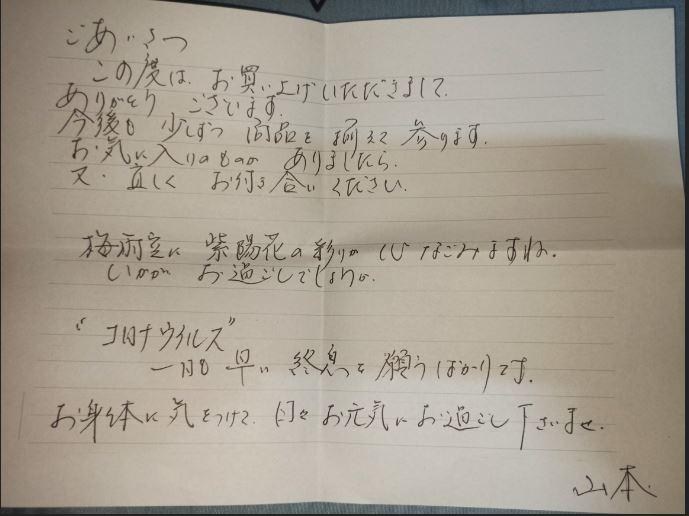 ごあいさつ
この度は、お買い上げいただきまして、
ありがとう ございます。
今後も 少しずつ 商品を 揃えて 参ります。
お気に入りのものが ありましたら、
又、宜しく お付き合いください。
梅雨空に 紫陽花の彩りが 心 なごみますね。
いかが お過ごしでしょうか。
“コロナウイルス”
一日も 早い 終息を 願うばかりです。
お身体に気をつけて、日々お元気にお過ごし下さいませ。
山本